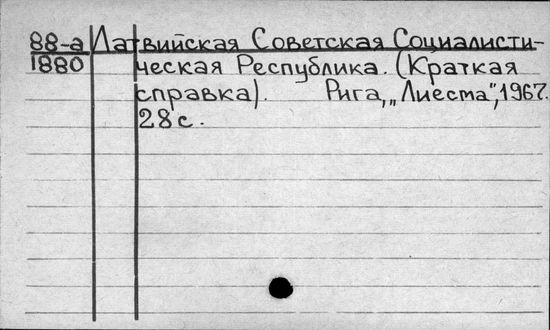 88-а Латвийская Советская Социалисти-
1880 ческая Республика. (Краткая
справка). Рига, „Лиесма", 1967.
28 с.